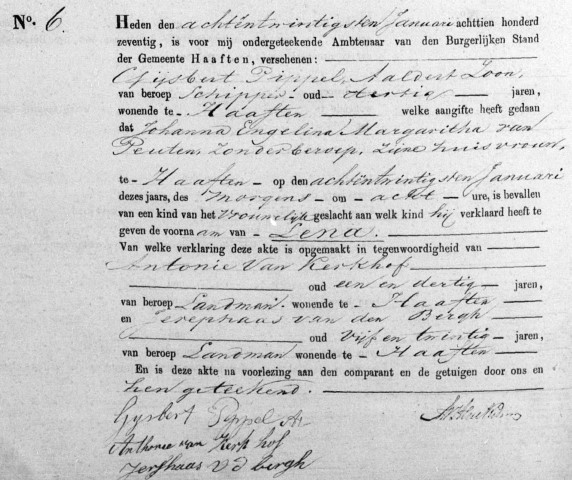 No. 6.
Heden den achtëntwintigsten Januari achttien honderd
zeventig, is voor mij ondergeteekende Ambtenaar van den Burgerlijken Stand
der Gemeente Haaften, verschenen:
Gijsbert Pippel, Aaldert Zoon,
van beroep Schipper oud dertig jaren,
wonende te Haaften welke aangifte heeft gedaan
dat Johanna Engelina Margaritha van
Peuten, zonder beroep, zijne huisvrouw,
te Haaften op den achtëntwintigsten Januari
dezes jaars, des morgens om acht ure, is bevallen
van een kind van het Vrouwelijk geslacht aan welk kind hij verklaard heeft te
geven de voornaam van Lena.
Van welke verklaring deze akte is opgemaakt in tegenwoordigheid van
Antonie Van Kerkhof
oud een en dertig jaren,
van beroep Landman wonende te Haaften
en Jerephaas van den Bergh
oud vijf en twintig jaren,
van beroep Landman wonende te Haaften
En is deze akte na voorlezing aan den comparant en de getuigen door ons en
hen geteekend.
Gysbert Pippel Az
Anthonie van Kerk hof
Jerfhaas v d bergh